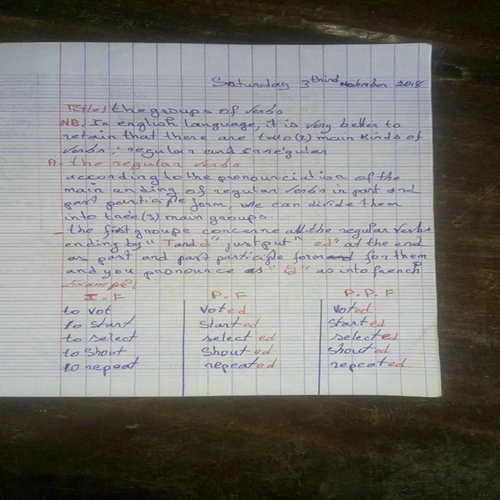 Saturday 3third November 2018
Title! the groups of verbs
NB. In english language, it is very better to
retain that there are two(2) main kinds of
verbs, regular and irregular
A- the regular verbs
according to the pronounciation of the
main ending of regular verbs in past and
past participle form, we can divide them
into tree(3) main groups.
- the first groupe concerne all the regular verbs
ending by " T and d" just put " ed" at the end
as past and past participle form and for them
and you pronounce as "id" as into french
Example!
I.F P.F P.P.F
to vot voted voted
to start started started
to select selected selected
to shout shouted shouted
to repeat repeated repeated